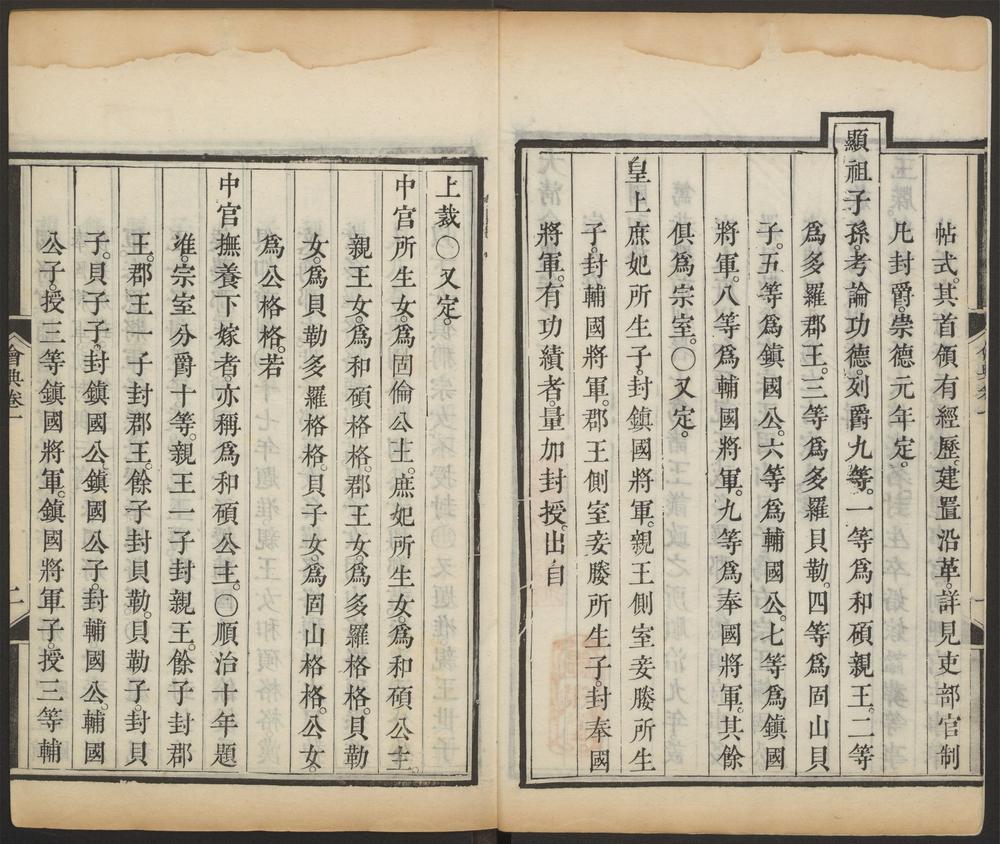 帖式。其首領有經歷。建置沿革。詳見吏部官制
凡封爵。崇德元年定。
顯祖子孫。考論功德。列爵九等。一等爲和碩親王。二等
爲多羅郡王。三等爲多羅貝勒。四等爲固山貝
子。五等爲鎮國公。六等爲輔國公。七等爲鎮國
將軍。八等爲輔國將軍。九等爲奉國將軍。其餘
俱爲宗室。〇又定。
皇上庶妃所生子。封鎮國將軍。親王側室妾媵所生
子。封輔國將軍。郡王側室妾媵所生子。封奉國
將軍。有功績者。量加封授。出自
上裁〇又定。
中宮所生女。爲固倫公主。庶妃所生女。爲和碩公主。
親王女。爲和碩格格。郡王女。爲多羅格格。貝勒
女。爲貝勒多羅格格。貝子女。爲固山格格。公女。
爲公格格。若
中宮撫養下嫁者。亦稱爲和碩公主。〇順治十年題
准。宗室分爵十等。親王一子封親王。餘子封郡
王。郡王一子封郡王。餘子封貝勒。貝勒子。封貝
子。貝子子。封鎮國公。鎮國公子。封輔國公。輔國
公子。授三等鎮國將軍。鎮國將軍子。授三等輔
會典卷一
二